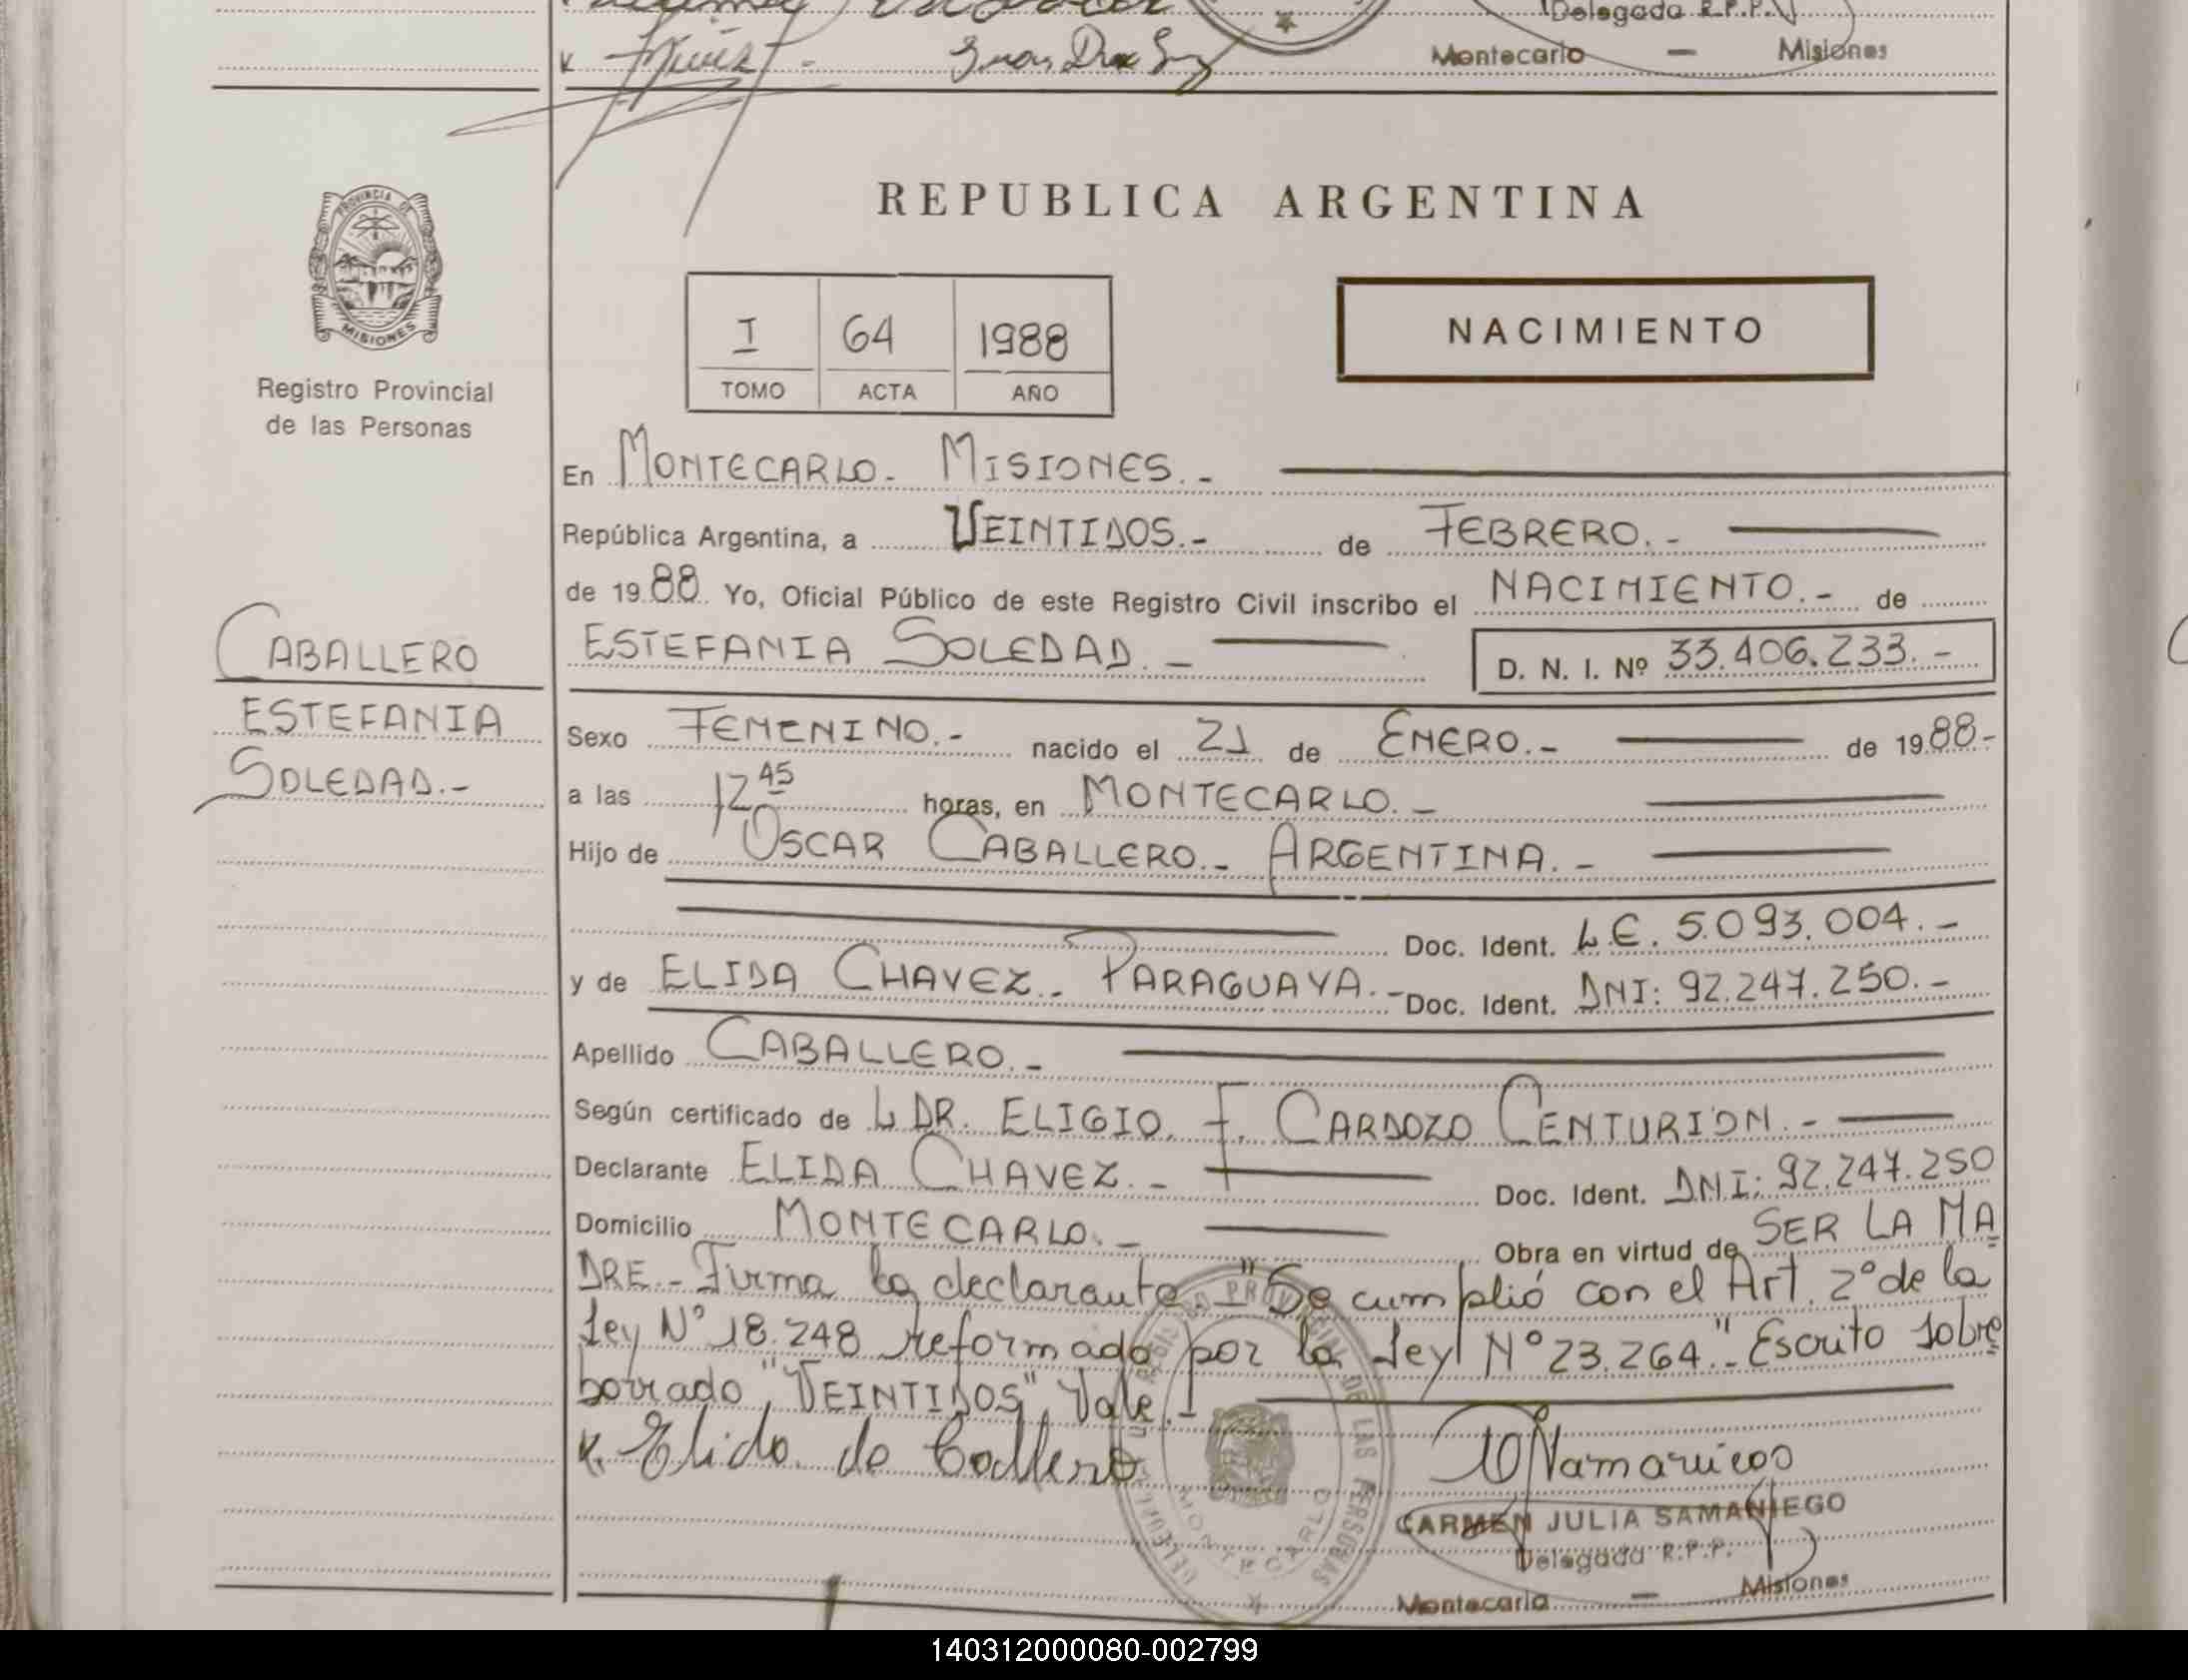 Delegada R.P.P.
Juan
Montecarlo — Misiones
PROVINCIA DE
MISIONES
Registro Provincial
de las Personas
REPUBLICA ARGENTINA
I 64 1988
TOMO ACTA AÑO
NACIMIENTO
En MONTECARLO.- MISIONES.-
República Argentina, a VEINTIDOS.- de FEBRERO.-
de 1988 Yo, Oficial Público de este Registro Civil inscribo el NACIMIENTO.- de
ESTEFANIA SOLEDAD.- D. N. I. Nº 33.406.233.-
CABALLERO
ESTEFANIA
SOLEDAD.-
Sexo FEMENINO.- nacido el 21 de ENERO.- de 1988.-
a las 12 45 horas, en MONTECARLO.-
Hijo de OSCAR CABALLERO.- ARGENTINA.-
Doc. Ident. L.E. 5.093.004.-
y de ELIDA CHAVEZ.- PARAGUAYA.- Doc. Ident. DNI: 92.247.250.-
Apellido CABALLERO.-
Según certificado de L DR. ELIGIO. F. CARDOZO CENTURION.-
Declarante ELIDA CHAVEZ.- Doc. Ident. DNI: 92.247.250
Domicilio MONTECARLO.- Obra en virtud de SER LA MA
DRE.- Firma la declarante.- "Se cumplió con el Art. 2º de la
Ley Nº 18.248 reformado por la Ley Nº 23.264".- Escrito sobre
borrado "VEINTIDOS", Vale.-
Elida de
CARMEN JULIA SAMANIEGO
Delegada R.P.P.
Montecarlo — Misiones
REGISTRO PROVINCIAL DE LAS PERSONAS
MONTECARLO
140312000080-002799